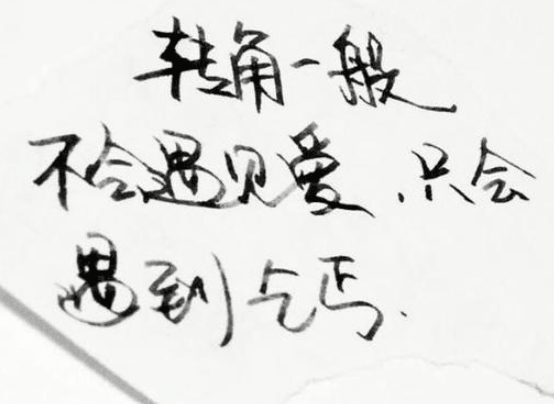 转角一般
不会遇见爱,只会
遇到乞丐.